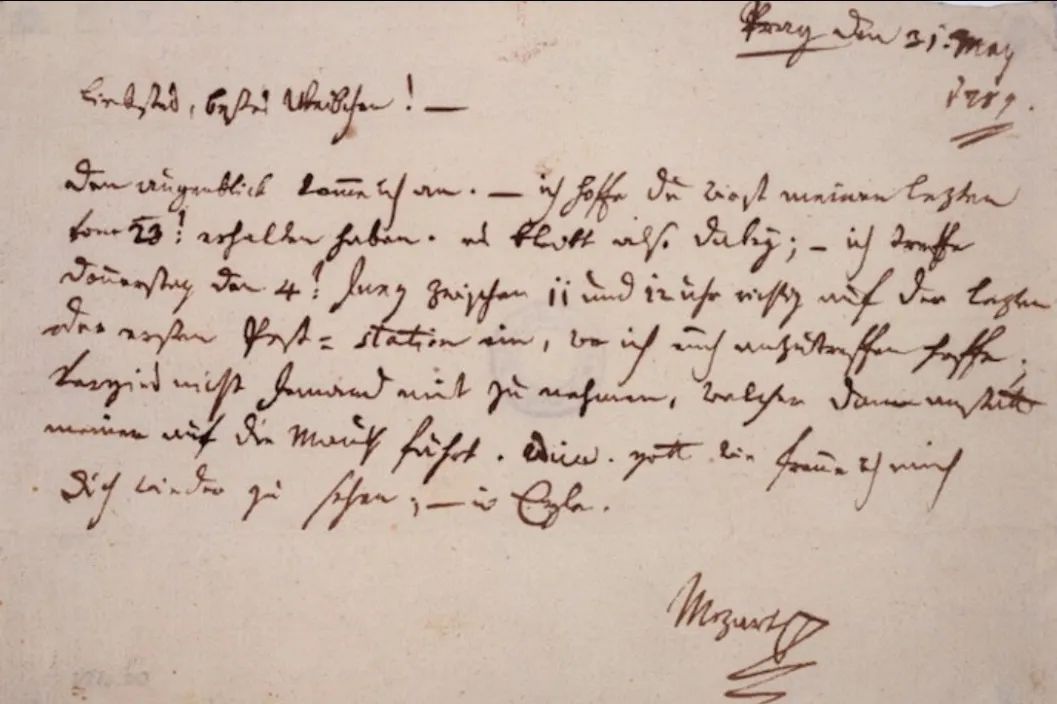 Prag den 31:t May
1789.
liebstes, bestes Weibchen! —
den augenblick komme ich an. — ich hoffe du wirst meinen lezten
vom 23:t erhalten haben. es bleibt also dabey; — ich treffe
donnerstag den 4:t Juny zwischen 11 und 12 uhr richtig auf der lezten
oder ersten Post=station ein, wo ich euch anzutreffen hoffe;
vergiss nicht Jemand mit zu nehmen, welcher dann anstatt
meiner auf die Mauth fährt. Adieu. gott wie freue ich mich
dich wieder zu sehen; — in Eyle.
Mozart